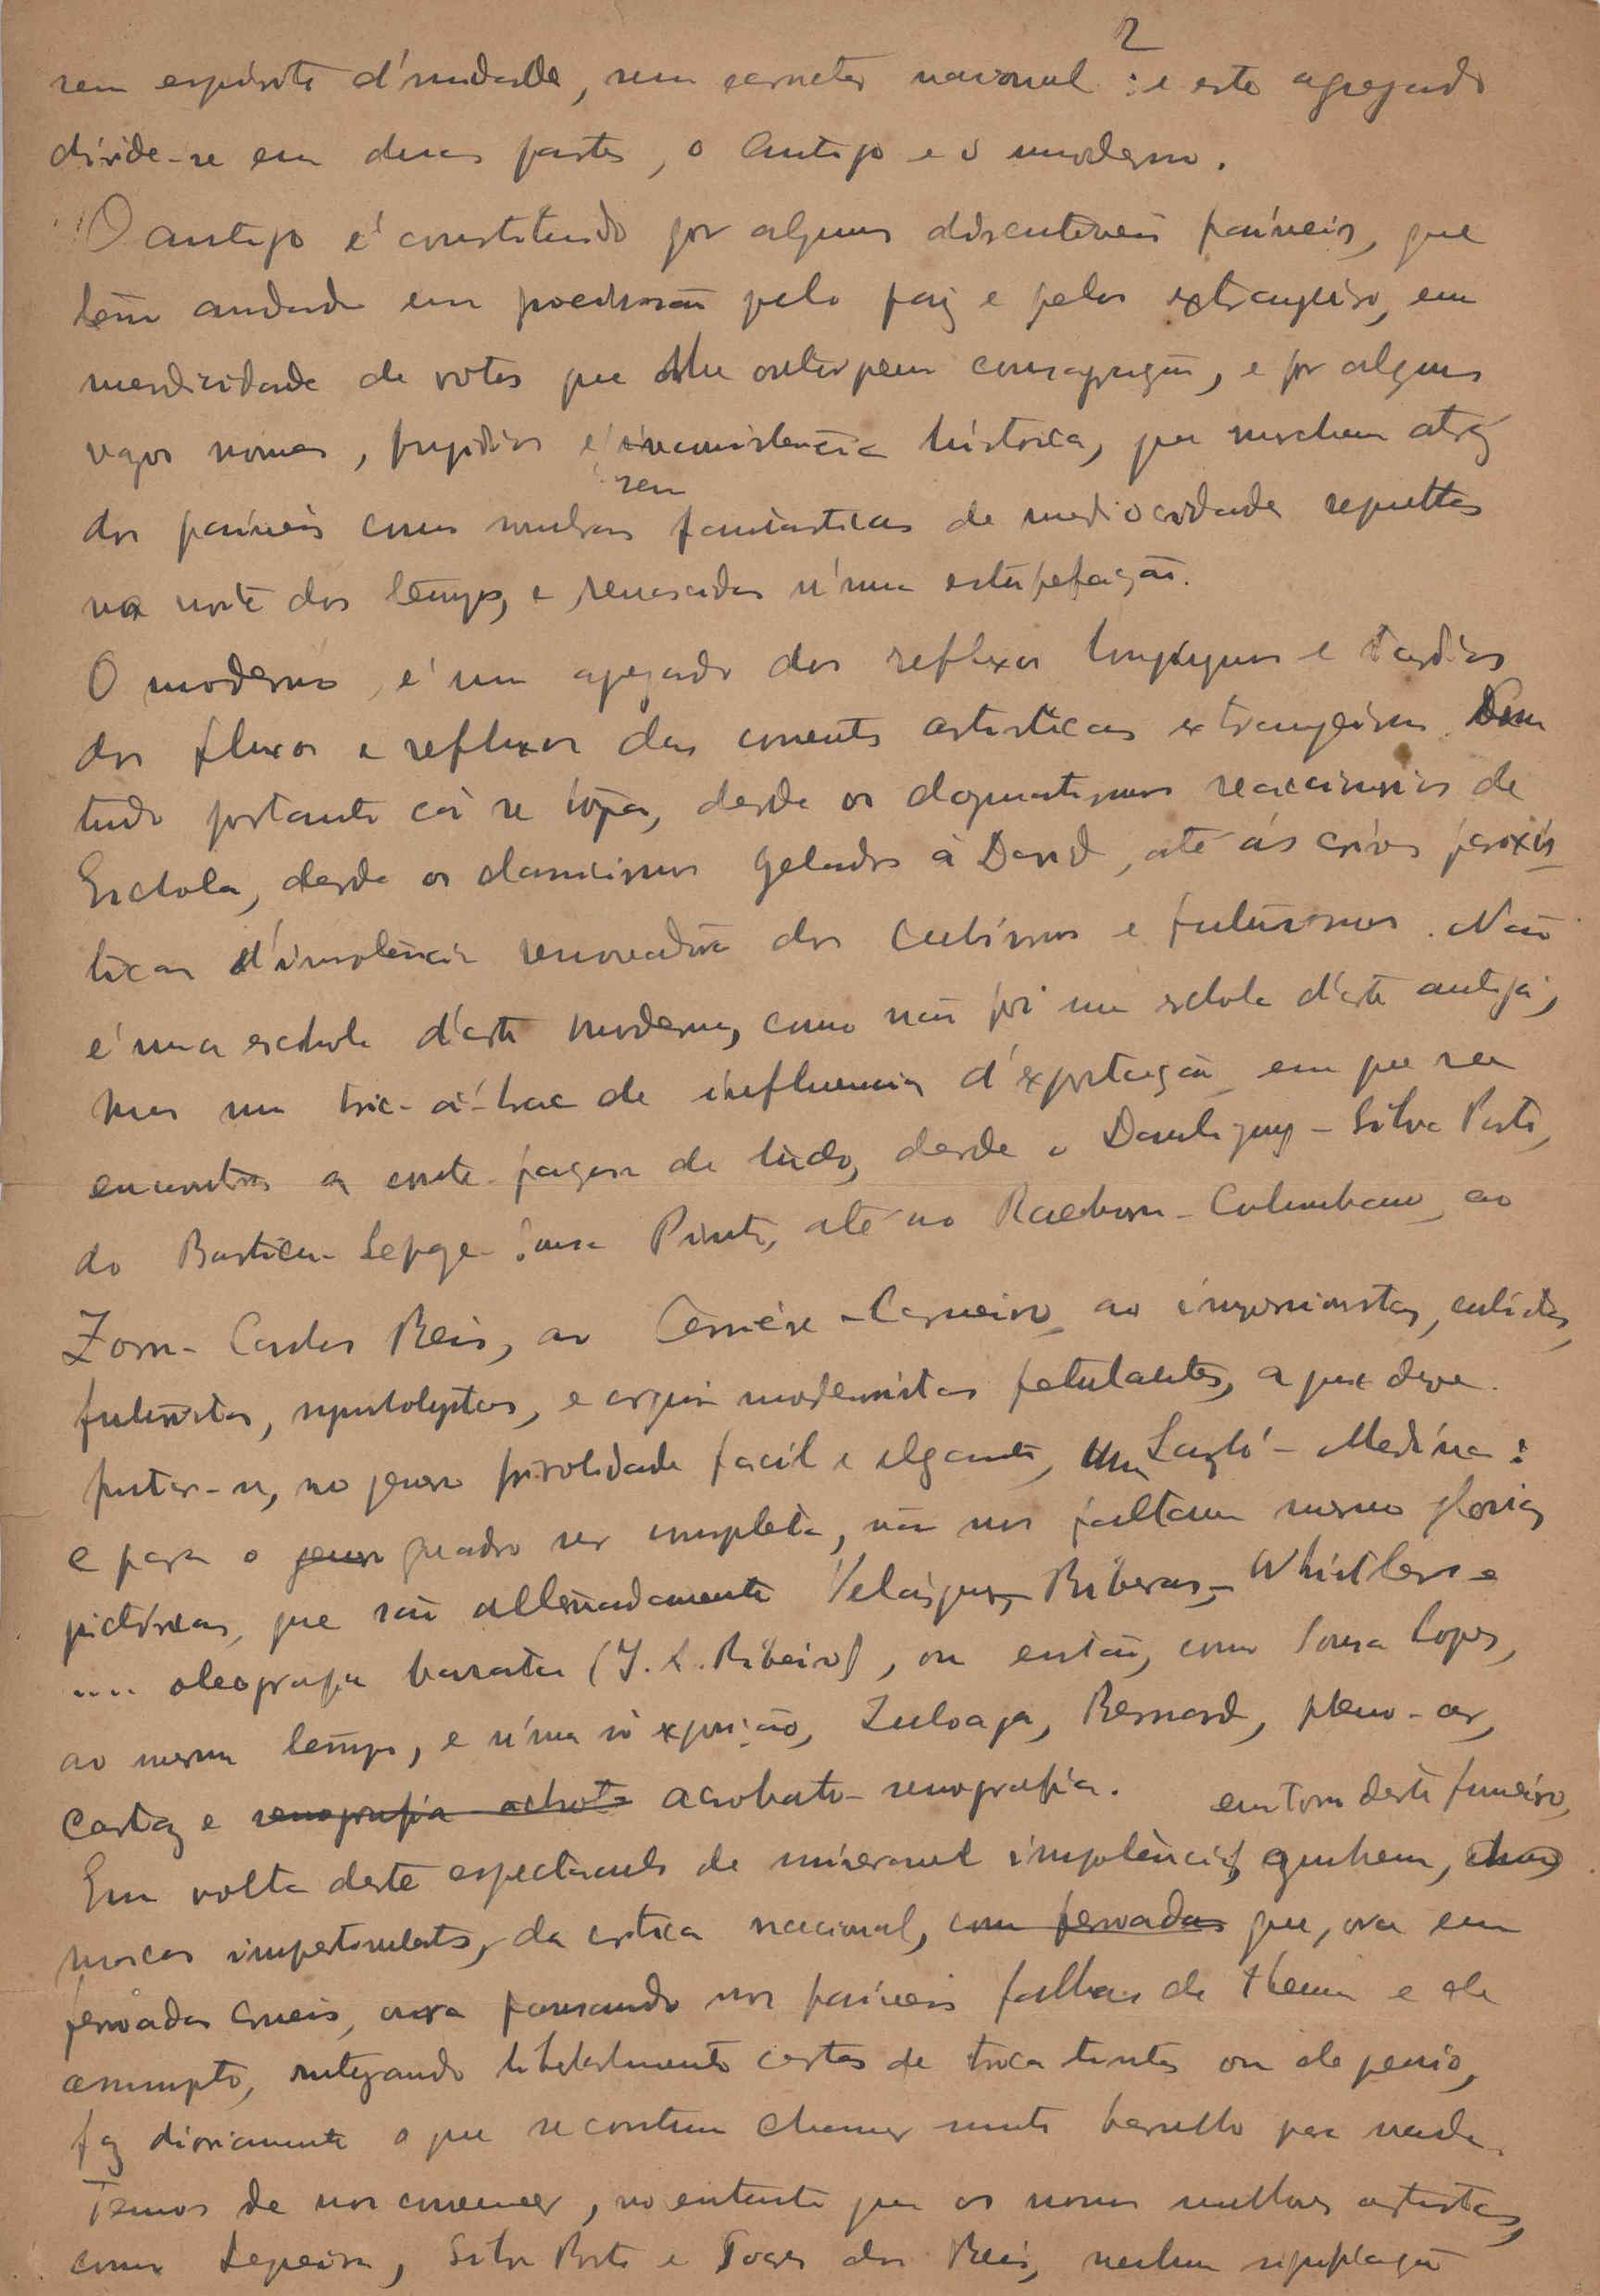 2
sem espirito d'unidade, sem caracter nacional : e este agregado
divide-se em duas partes, o antigo e o moderno.
O antigo é constituido por alguns discutiveis paineis, que
têm andado em procissão pelo paiz e pelo extrangeiro, em
mendicidade de votos que lhe outorguem consagração, e por alguns
vagos nomes, fugidios e sem inconsistencia historica, que marcham atraz
dos paineis como sombras fantasticas de mediocridades sepultas
na noite dos tempos, e renascidas n'uma estupefação.
O moderno, é um agregado dos reflexos longiquos e tardios
dos fluxos e refluxos das correntes artisticas extrangeiras. De
tudo portanto cá se topa, desde os dogmatismos reaccionarios de
Eschola, desde os classicismos gelados á David, até ás crises paroxis-
ticas d'insolencia renovadora dos cubismos e futurismos. Não
é uma eschola d'arte moderna, como não foi uma eschola d'arte antiga,
mas um tric-á-trac de influencias d'exportação em que se
encontra a contrafação de tudo, desde o Daubigny - Silva Porto,
do Bastien-Lepage - Sousa Pinto, até ao Raeburn - Columbano, ao
Zorn - Carlos Reis, ao Carrière - Carneiro, ao impressionistas, cubistas,
futuristas, e modernistas petulantes, a que deve
juntar-se, no genero frivolidade facil e elegante, um Laszló - Medina :
e para o genero quadro ser completo, não nos faltam mesmo glorias
pictóricas, que são alternadamente Velásquez, Riberas, Whistlers e
.... oleografia barata (J. R. Ribeiro), ou então, como Sousa Lopes,
ao mesmo tempo, e n'uma só exposição, Zuloaga, Besnard, pleno-ar,
cartaz e senografia acrobata acrobato-senografia.
em torno deste
Em volta deste espectaculo de miseravel impotência, moscas impertinentes, da critica nacional, com ferroadas que, ora em
ferroadas crueis, ora pousando nos paineis falhos de thema e de
assumpto, cartas de troca tintas ou de genio,
faz diariamente o que se costuma chamar muito barulho para nada.
Temos de nos convencer, no entanto que os nossos melhores artistas,
como Sequeira, Silva Porto e Soares dos Reis, nenhuma significação